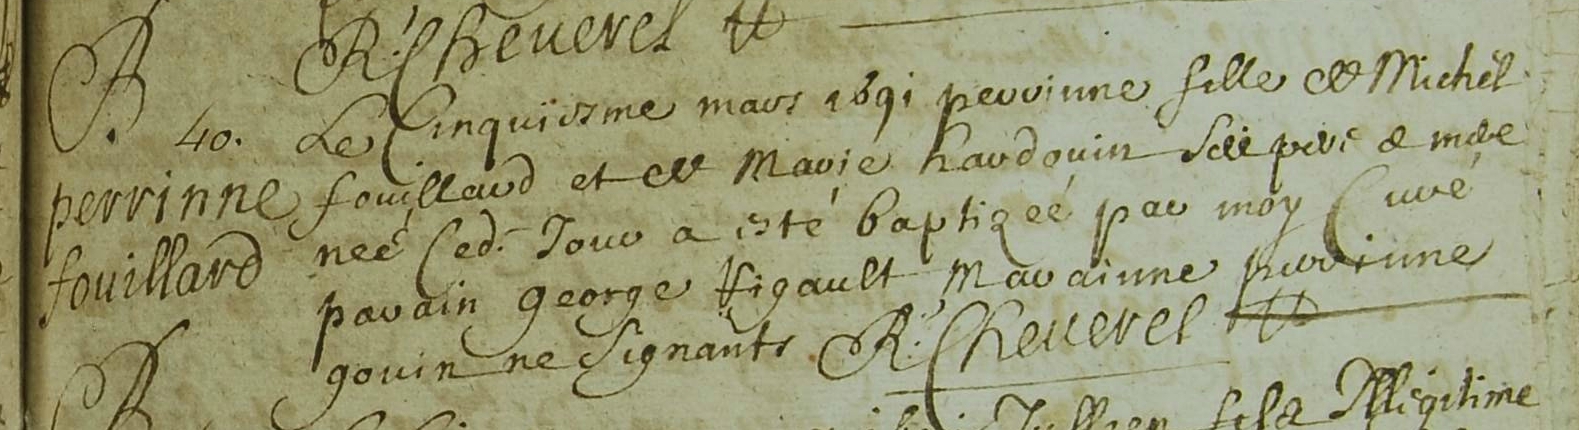 R. Cheverel
B
40. Le Cinquiesme mars 1691 perrinne fille de Michel
perrinne fouillard et de Marie hardouin ses pere & mere
fouillard neé Ced. Jour a esté baptizeé par moy Curé
parain george Rigault Marainne perrinne
gouin ne signants R. Cheverel
B
Jullien fils Illegitime